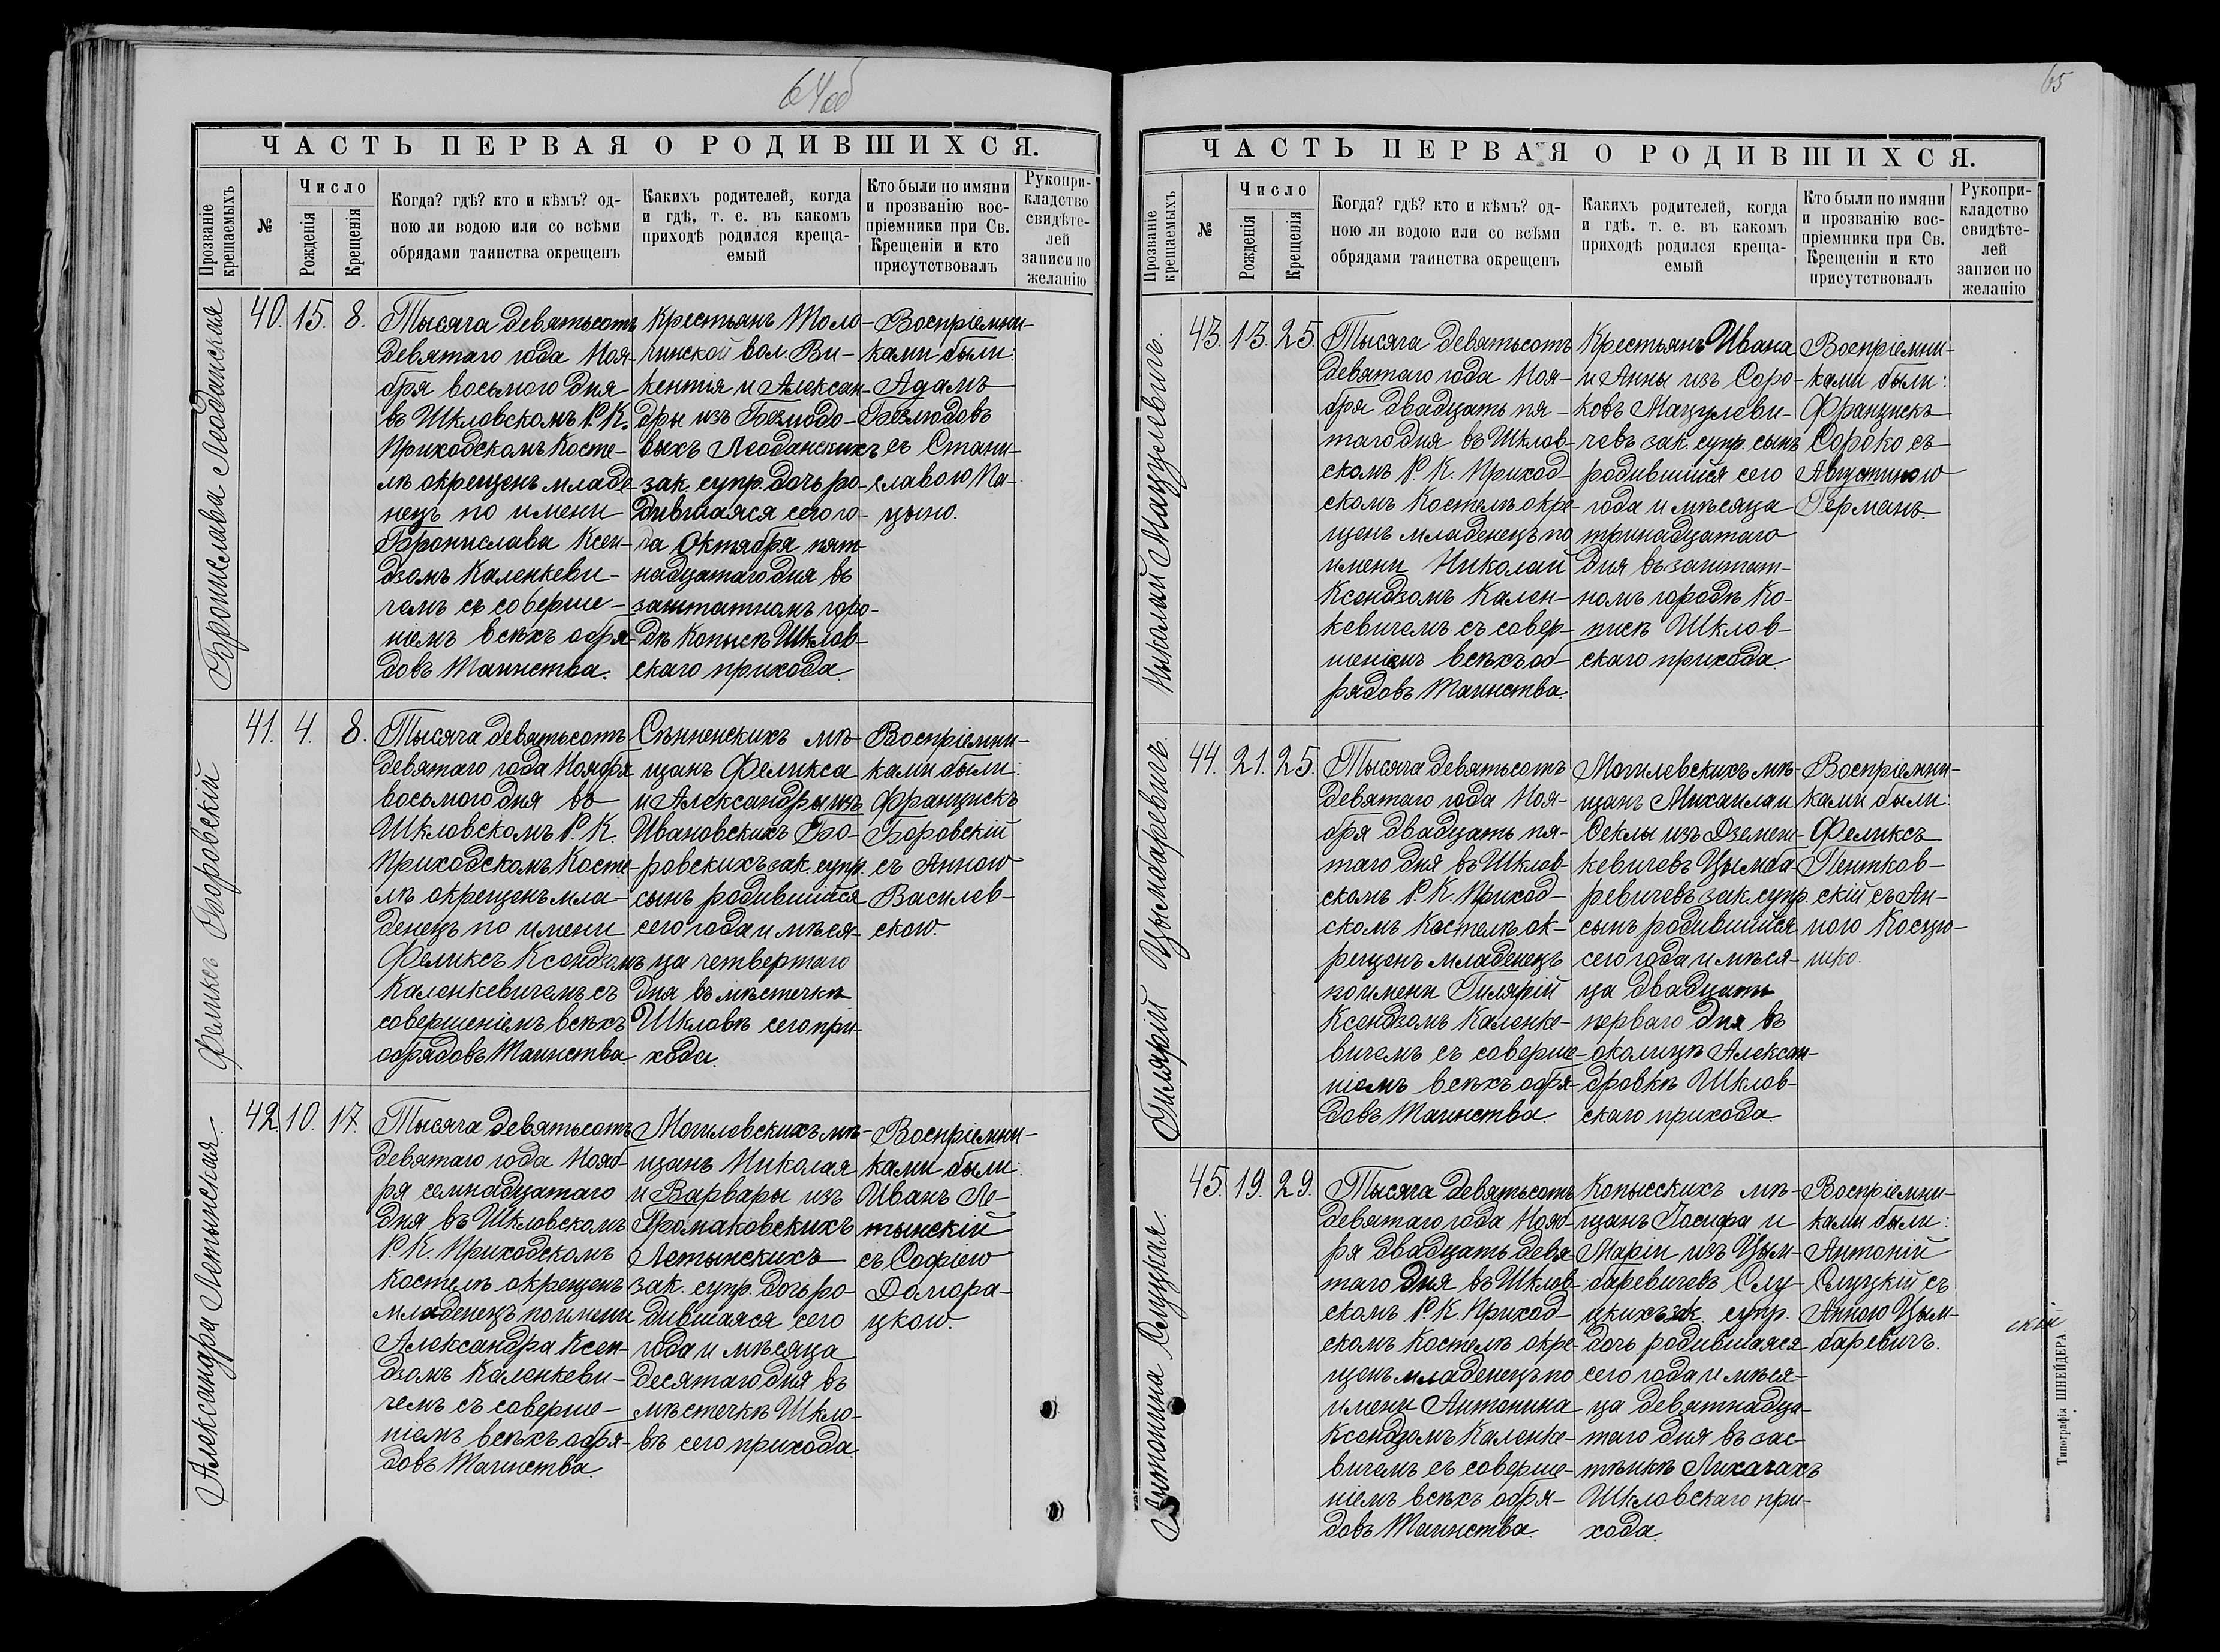 64об
ЧАСТЬ ПЕРВАЯ О РОДИВШИХСЯ.
Прозваніе крещаемыхъ
№
Число
Рожденія
Крещенія
Когда? гдѣ? кто и кѣмъ? од-
ною ли водою или со всѣми
обрядами таинства окрещенъ
Какихъ родителей, когда
и гдѣ, т. е. въ какомъ
приходѣ родился креща-
емый
Кто были по имяни
и прозванію вос-
пріемники при Св.
Крещеніи и кто
присутствовалъ
Рукопри-
кладство
свидѣте-
лей
записи по
желанію
Бронислава Леоданская
40. 15. 8.
Тысяча девятьсотъ
девятаго года Ноя-
бря восьмого дня
въ Шкловскомъ Р. К.
Приходскомъ Косте-
лѣ окрещенъ младе-
нецъ по имени
Бронислава Ксен-
дзомъ Каленкеви-
чемъ съ соверше-
ніемъ всѣхъ обря-
довъ Таинства.
Крестьянъ Толо-
чинской вол. Ви-
кентія и Алексан-
дры изъ Безлюдо-
выхъ Леоданскихъ
зак. супр. дочь ро-
дившаяся сего го-
да Октября пят-
надцатаго дня въ
заштатномъ горо-
дѣ Копысѣ Шклов-
скаго прихода.
Воспріемни-
ками были:
Адамъ
Безлюдовъ
съ Стани-
славою Па-
цыно.
Феликсъ Боровскій
41. 4. 8.
Тысяча девятьсотъ
девятаго года Ноября
восьмого дня въ
Шкловскомъ Р. К.
Приходскомъ Косте-
лѣ окрещенъ мла-
денецъ по имени
Феликсъ Ксендзомъ
Каленкевичемъ съ
совершеніемъ всѣхъ
обрядовъ Таинства.
Сѣнненскихъ мѣ-
щанъ Феликса
и Александры изъ
Ивановскихъ Бо-
ровскихъ зак. супр.
сынъ родившійся
сего года и мѣся-
ца четвертаго
дня въ мѣстечкѣ
Шкловѣ сего при-
хода.
Воспріемни-
ками были:
Францискъ
Боровскій
съ Анною
Василев-
скою.
Александра Летынская
42. 10. 17.
Тысяча девятьсотъ
девятаго года Нояб-
ря семнадцатаго
дня въ Шкловскомъ
Р. К. Приходскомъ
Костелѣ окрещенъ
младенецъ по имени
Александра Ксен-
дзомъ Каленкеви-
чемъ съ соверше-
ніемъ всѣхъ обря-
довъ Таинства.
Могилевскихъ мѣ-
щанъ Николая
и Варвары изъ
Громаковскихъ
Летынскихъ
зак. супр. дочь ро-
дившаяся сего
года и мѣсяца
десятаго дня въ
мѣстечкѣ Шкло-
вѣ сего прихода.
Воспріемни-
ками были:
Иванъ Ле-
тынскій
съ Софіею
Домора-
цкою.
65
ЧАСТЬ ПЕРВАЯ О РОДИВШИХСЯ.
Прозваніе крещаемыхъ
№
Число
Рожденія
Крещенія
Когда? гдѣ? кто и кѣмъ? од-
ною ли водою или со всѣми
обрядами таинства окрещенъ
Какихъ родителей, когда
и гдѣ, т. е. въ какомъ
приходѣ родился креща-
емый
Кто были по имяни
и прозванію вос-
пріемники при Св.
Крещеніи и кто
присутствовалъ
Рукопри-
кладство
свидѣте-
лей
записи по
желанію
Николай Мацулевичъ.
43. 13. 25.
Тысяча девятьсотъ
девятаго года Ноя-
бря двадцать пя-
таго дня въ Шклов-
скомъ Р. К. Приход-
скомъ Костелѣ окре-
щенъ младенецъ по
имени Николай
Ксендзомъ Кален-
кевичемъ съ совер-
шеніемъ всѣхъ об-
рядовъ Таинства.
Крестьянъ Ивана
и Анны изъ Соро-
ковъ Мацулеви-
чевъ зак. супр. сынъ
родившійся сего
года и мѣсяца
тринадцатаго
дня въ заштат-
номъ городѣ Ко-
писѣ Шклов-
скаго прихода.
Воспріемни-
ками были:
Францискъ
Сороко съ
Августиною
Германъ.
Гилярій Цымбаревичъ.
44. 21. 25.
Тысяча девятьсотъ
девятаго года Ноя-
бря двадцать пя-
таго дня въ Шклов-
скомъ Р. К. Приход-
скомъ Костелѣ ок-
рещенъ младенецъ
по имени Гилярій
Ксендзомъ Каленке-
вичемъ съ соверше-
ніемъ всѣхъ обря-
довъ Таинства.
Могилевскихъ мѣ-
щанъ Михаила и
Ѳеклы изъ Дземен-
кевичевъ Цымба-
ревичевъ зак. супр.
сынъ родившійся
сего года и мѣся-
ца двадцать
перваго дня въ
околицѣ Алексан-
дровкѣ Шклов-
скаго прихода.
Воспріемни-
ками были:
Феликсъ
Пентков-
скій съ Ан-
ною Косцю-
шко.
Антонина Слуцкая.
45. 19. 29.
Тысяча девятьсотъ
девятаго года Нояб-
ря двадцать девя-
таго дня въ Шклов-
скомъ Р. К. Приход-
скомъ Костелѣ окре-
щенъ младенецъ по
имени Антонина
Ксендзомъ Каленке-
вичемъ съ соверше-
ніемъ всѣхъ обря-
довъ Таинства.
Копысскихъ мѣ-
щанъ Іосифа и
Маріи изъ Цым-
баревичевъ Слу-
цкихъ зак. супр.
дочь родившаяся
сего года и мѣся-
ца девятнадца-
таго дня въ зас-
тѣнкѣ Лихачахъ
Шкловскаго при-
хода.
Воспріемни-
ками были:
Антоній
Слуцкій съ
Анною Цым-
баревичъ.
скій
Типографія ШНЕЙДЕРА